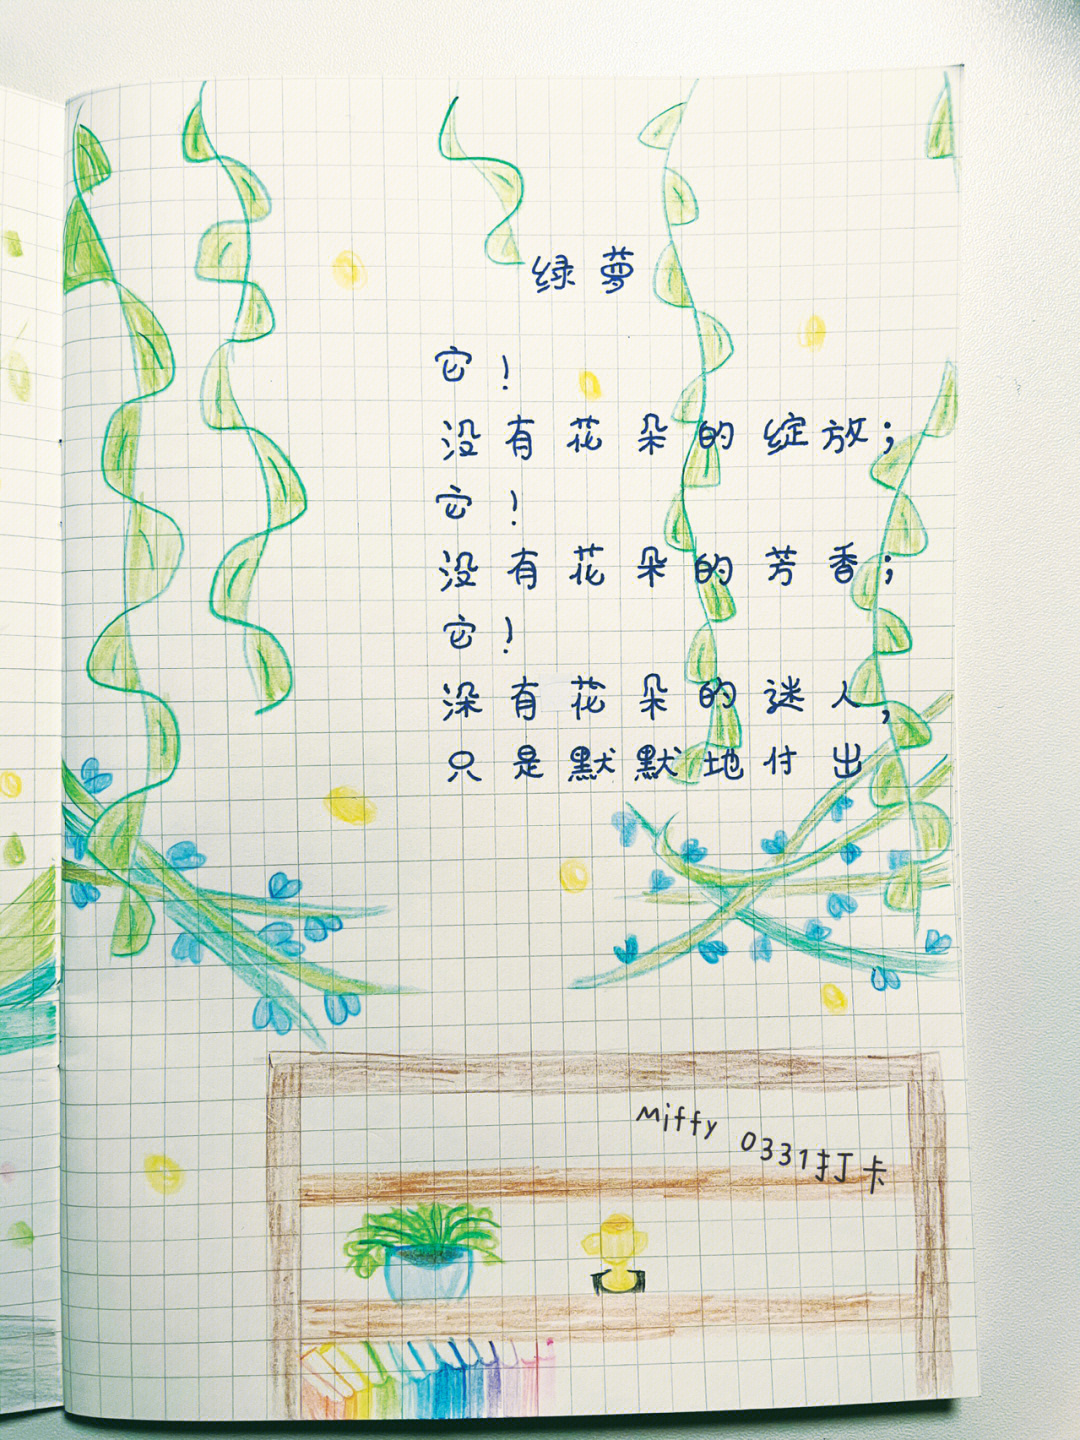 绿萝
它！
没有花朵的绽放；
它！
没有花朵的芳香；
它！
没有花朵的迷人，
只是默默地付出
Miffy 0331打卡